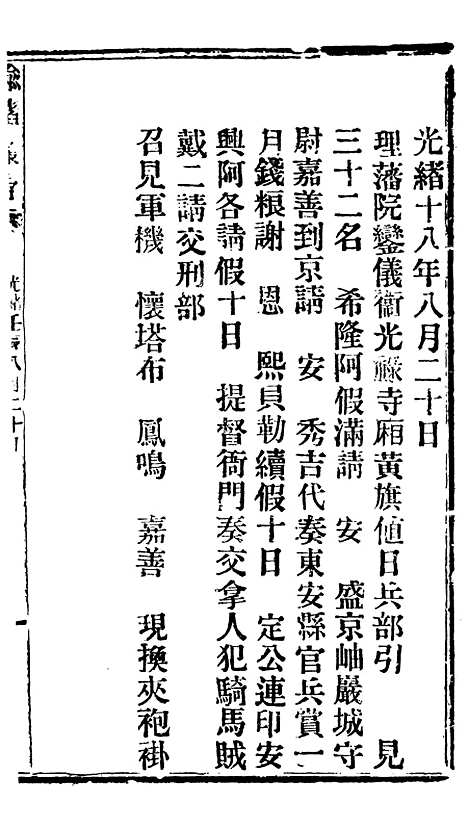 光緒十八年八月二十日
理藩院鑾儀衞光祿寺廂黃旗値日兵部引 見
三十二名 希隆阿假滿請 安 盛京岫巖城守
尉嘉善到京請 安 秀吉代奏東安縣官兵賞一
月錢糧謝 恩 熙貝勒續假十日 定公連印安
興阿各請假十日 提督衙門奏交拿人犯騎馬賊
戴二請交刑部
召見軍機 懷塔布 鳳鳴 嘉善 現換夾袍褂
光緒壬辰八月二十日